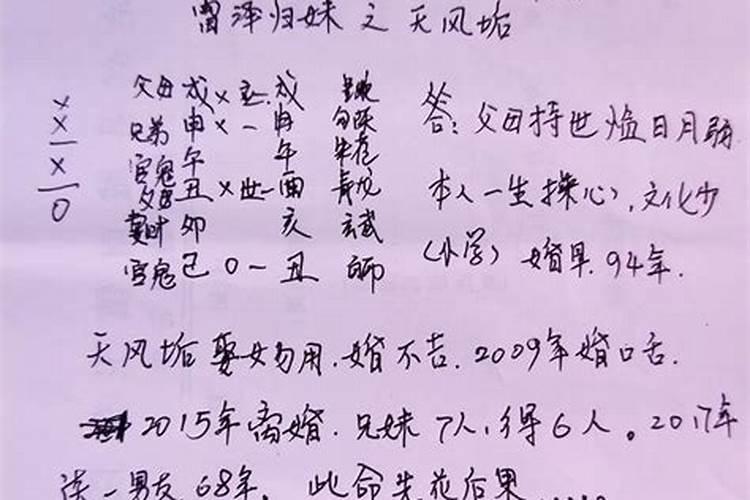 雷泽归妹之天风垢
× 父母戌×应戌
× 兄弟申×一申 答:父母持世临日月
一 官鬼午 午
× 父母丑×世一酉 本人一生操心,文化少
一 妻财卯 亥 玄武
0 官鬼巳0一丑 (小学)婚早.94年.
天风垢娶女勿用.婚不吉.2009年婚口舌.
2015年离婚.兄妹7人,得6人。2017年
一男友68年,此命先花后果……